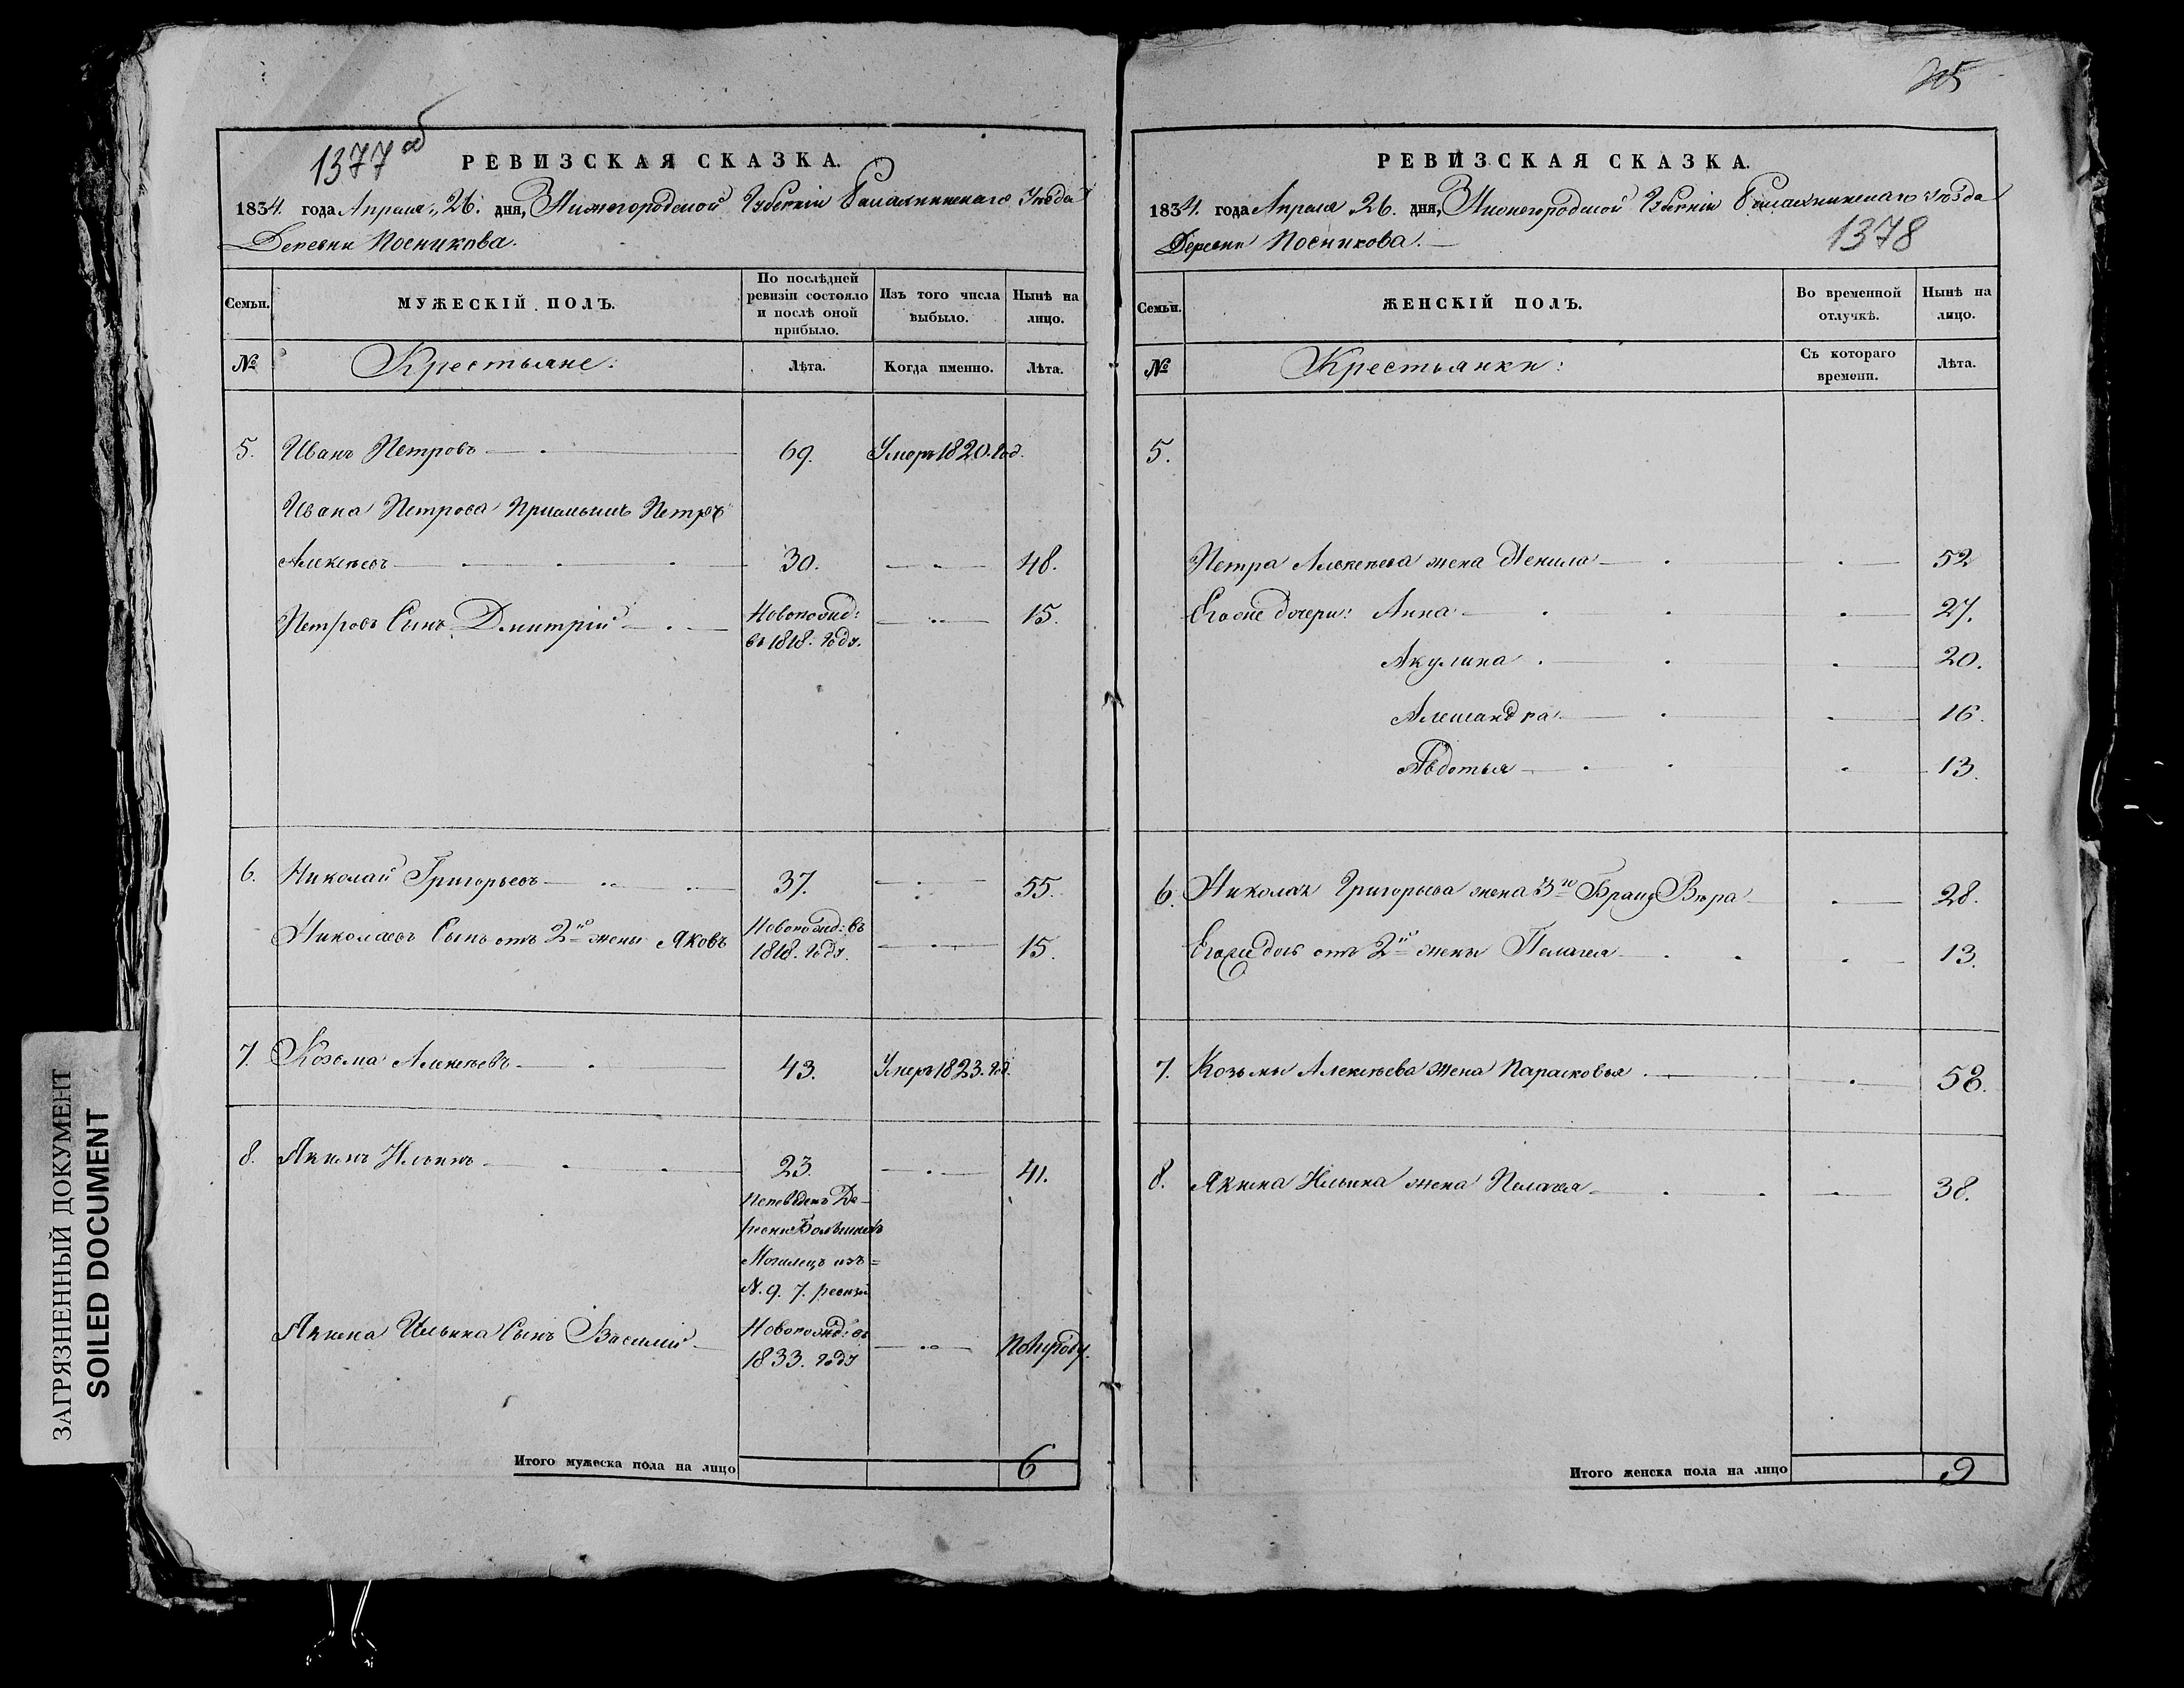 1377об
РЕВИЗСКАЯ СКАЗКА.
1834. года Апреля, 26. дня, Нижегородской Губерніи Балахнинскаго Уѣзда
Деревни Посникова.
Семьи.
МУЖЕСКІЙ ПОЛЪ.
По послѣдней
ревизіи состояло
и послѣ оной
прибыло.
Изъ того числа
выбыло.
Нынѣ на
лицо.
№
Крестьяне:
Лѣта.
Когда именно.
Лѣта.
5. Иванъ Петровъ 69. Умеръ 1820. год.
Ивана Петрова Приемышъ Петръ
Алексѣевъ 30. 48.
Петровъ Сынъ Дмитрій Новорожд: 15.
въ 1818. году.
6. Николай Григорьевъ 37. 55.
Николаевъ Сынъ отъ 2й жены Яковъ Новорожд: въ 15.
1818. году.
7. Козьма Алексѣевъ 43. Умеръ 1823. год.
8. Якимъ Ильинъ 23. 41.
Переведенъ Де-
ревни
Могилецъ изъ
№. 9. 7. ревизіи
Якима Ильина Сынъ Василій Новорожд: въ Полугоду.
1833. году
Итого мужеска пола на лицо 6
205
РЕВИЗСКАЯ СКАЗКА.
1834. года Апреля 26. дня, Нижегородской Губерніи Балахнинскаго Уѣзда
Деревни Посникова. 1378
Семьи.
ЖЕНСКІЙ ПОЛЪ.
Во временной
отлучкѣ.
Нынѣ на
лицо.
№
Крестьянки:
Съ котораго
времени.
Лѣта.
5.
Петра Алексѣева жена Ненила 52
Егоже дочери: Анна 27.
Акулина 20.
Александра 16.
Авдотья 13.
6. Николая Григорьева жена 3го Брака Вѣра 28.
Егоже дочь отъ 2й жены Пелагея 13.
7. Козьмы Алексѣева жена Парасковья 58.
8. Якима Ильина жена Пелагея 38.
Итого женска пола на лицо 9
ЗАГРЯЗНЕННЫЙ ДОКУМЕНТ
SOILED DOCUMENT